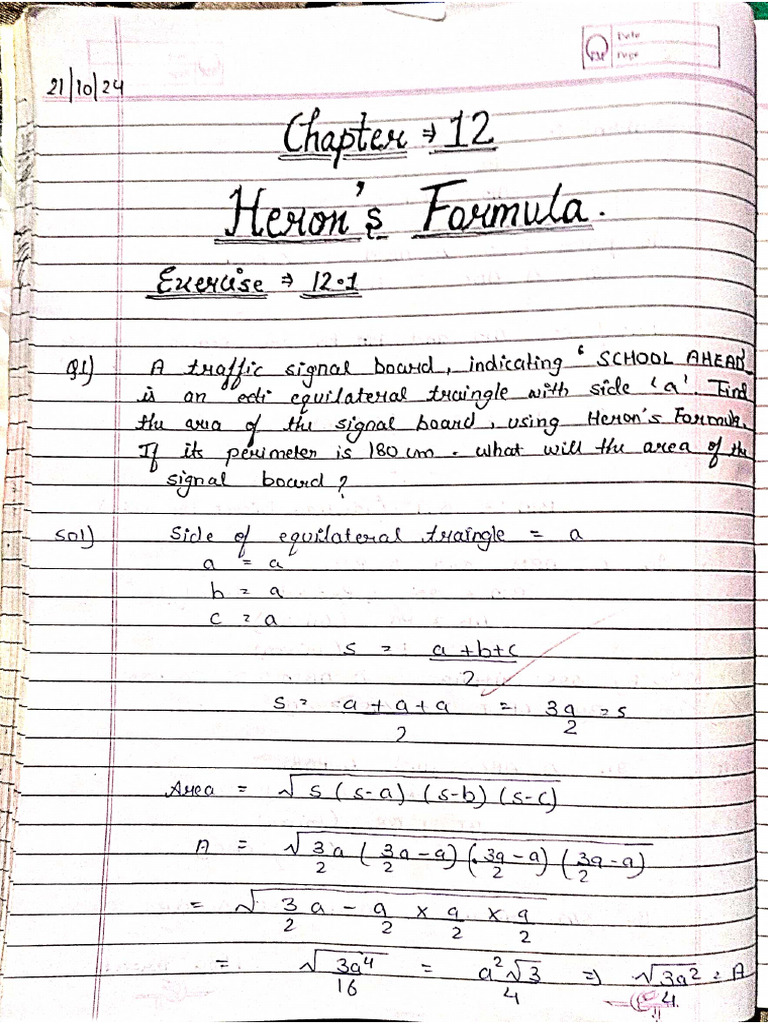 Date
Page
21/10/24
Chapter ⇒ 12
Heron's Formula.
Exercise ⇒ 12.1
Q1) A traffic signal board, indicating ' SCHOOL AHEAD
is an edi equilateral traingle with side 'a'. Find
the area of the signal board, using Heron's Formula.
If its perimeter is 180 cm. what will the area of the
signal board?
Sol) Side of equilateral traingle = a
a = a
b = a
c = a
s = a+b+c/2
s = a+a+a/2 = 3a/2 = s
Area = √s(s-a)(s-b)(s-c)
A = √3a/2 (3a/2-a)(3a/2-a)(3a/2-a)
= √3/2 a - a/2 × a/2 × a/2
= √3a⁴/16 = a²√3/4 ⇒ √3a²/4 = A